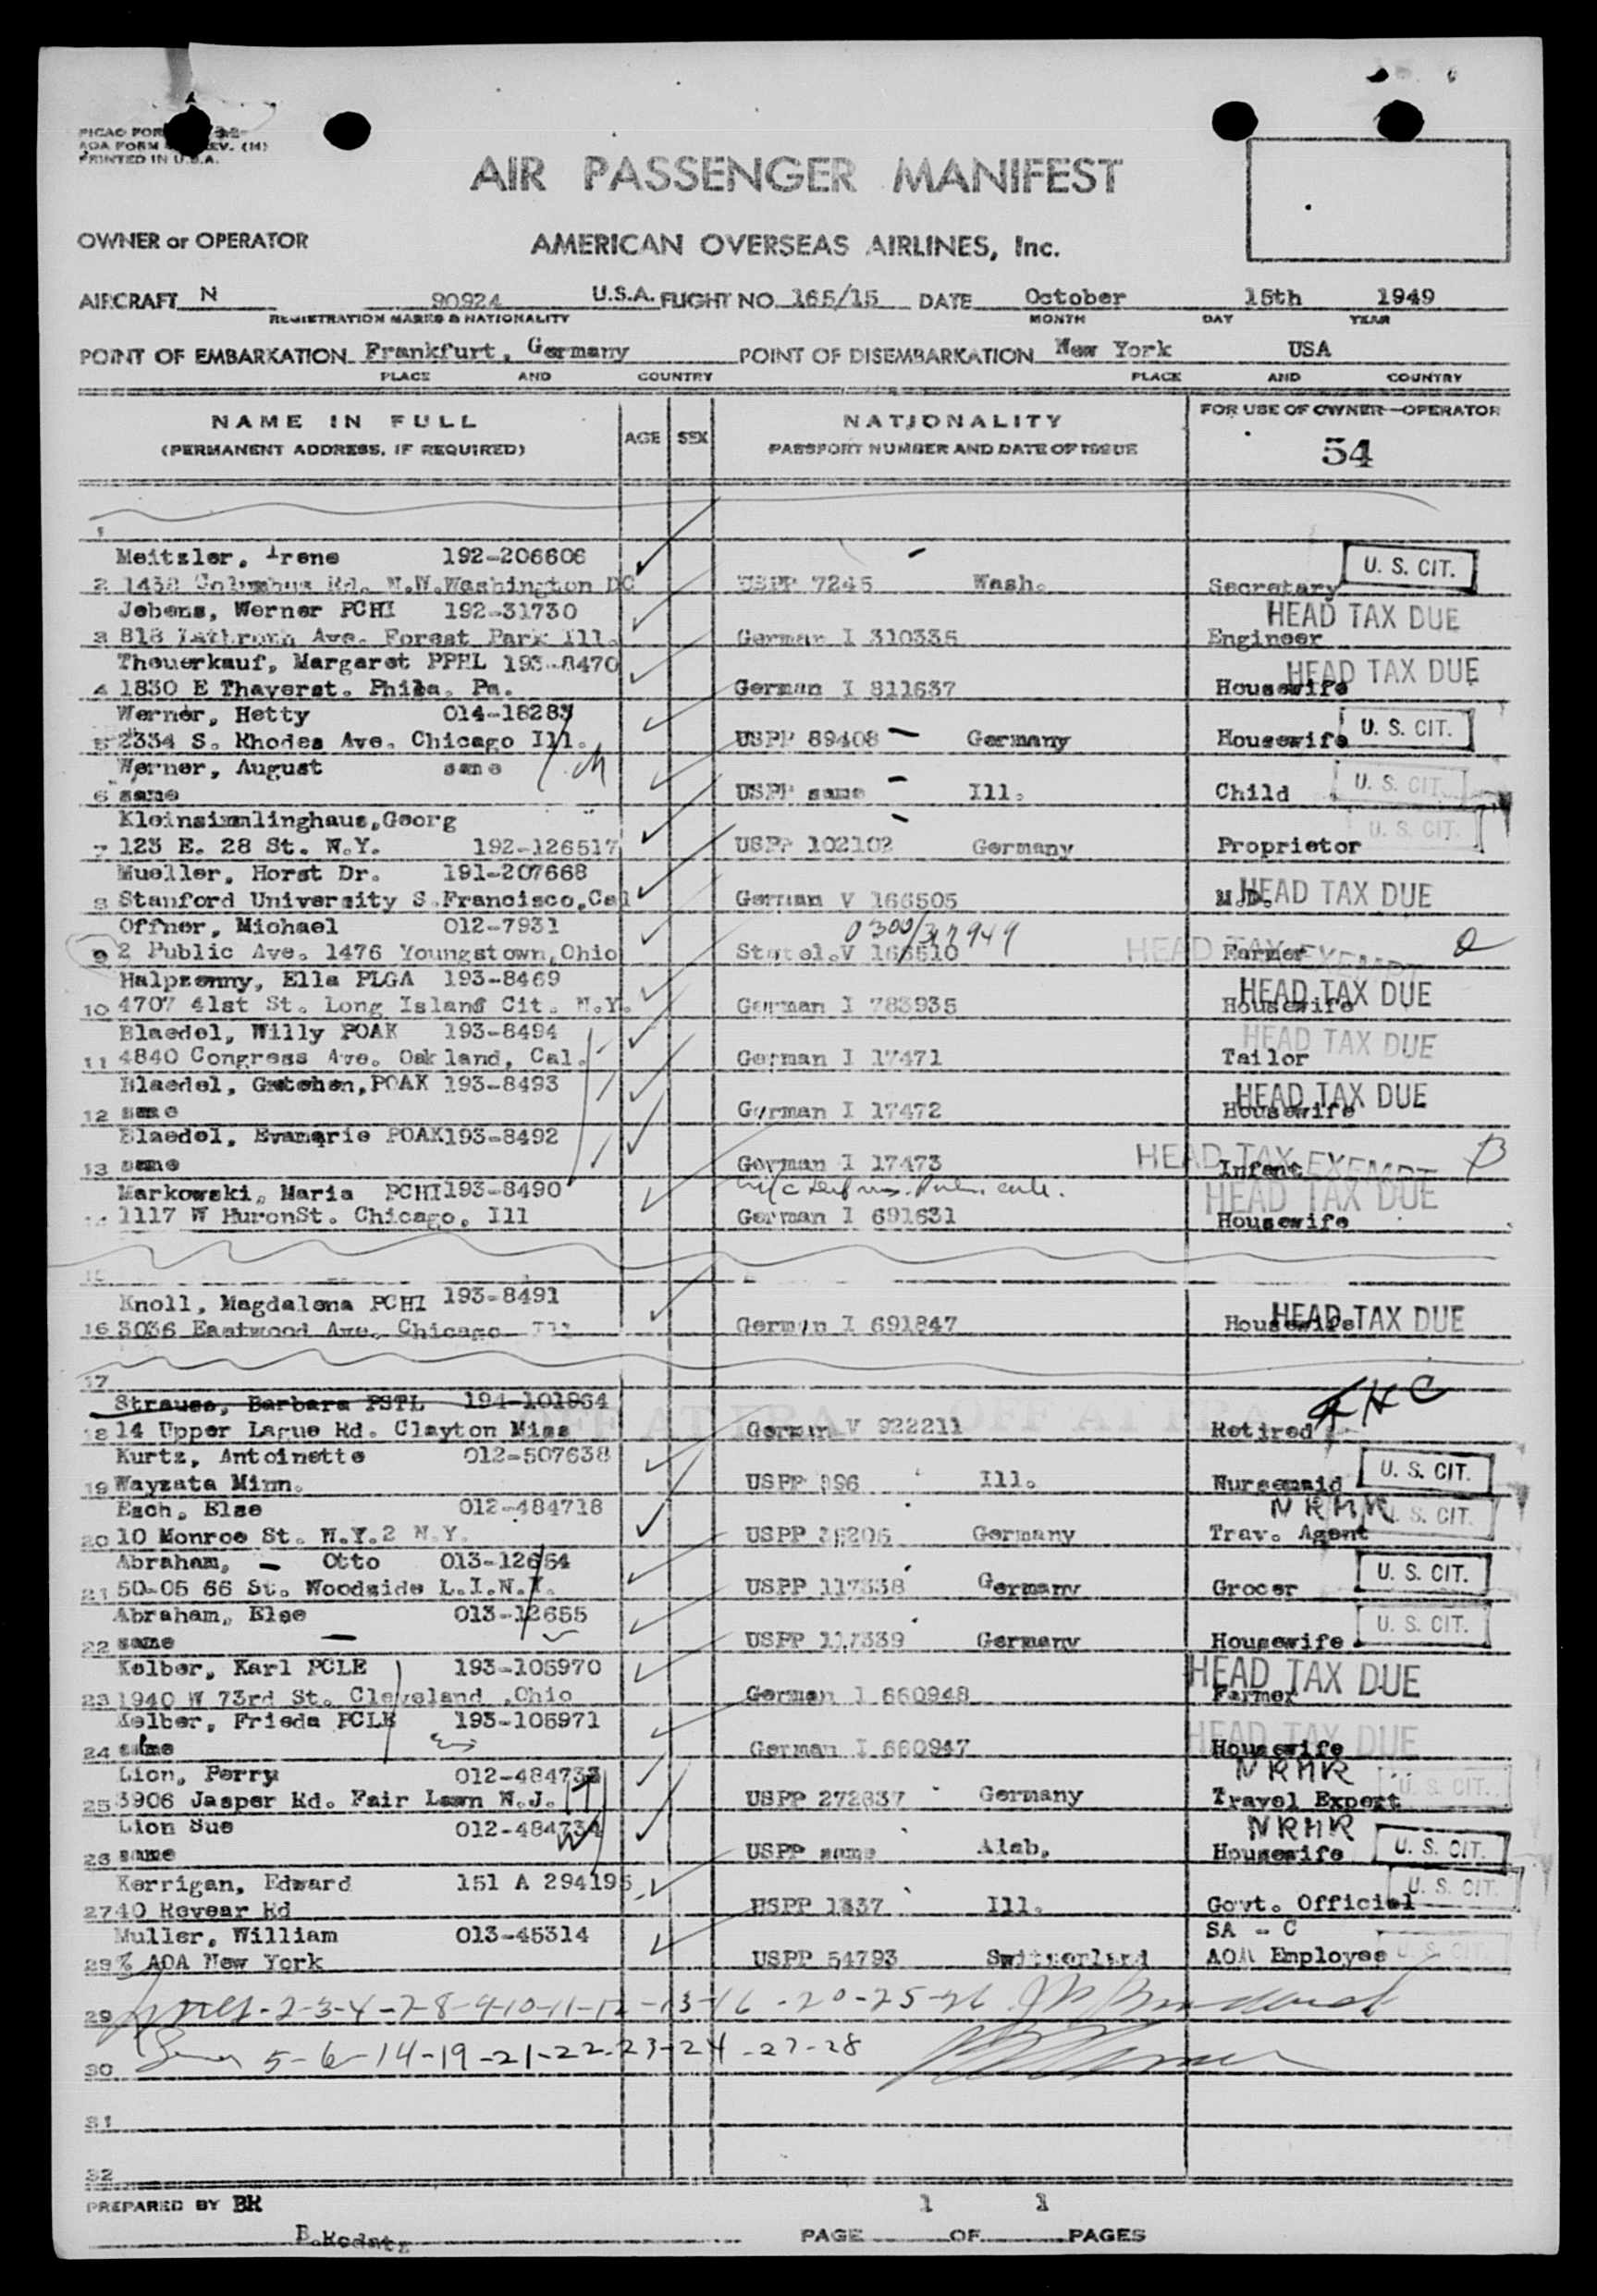 PICAO FORM
AOA FORM REV. (M)
PRINTED IN U.S.A.
AIR PASSENGER MANIFEST
OWNER or OPERATOR AMERICAN OVERSEAS AIRLINES, Inc.
AIRCRAFT N 90924 U.S.A. FLIGHT NO. 165/15 DATE October 15th 1949
REGISTRATION MARKS & NATIONALITY MONTH DAY YEAR
POINT OF EMBARKATION Frankfurt, Germany POINT OF DISEMBARKATION New York USA
PLACE AND COUNTRY PLACE AND COUNTRY
NAME IN FULL AGE SEX NATIONALITY FOR USE OF OWNER—OPERATOR
(PERMANENT ADDRESS, IF REQUIRED) PASSPORT NUMBER AND DATE OF ISSUE 54
1
Meitzler, Irene 192-206606 U. S. CIT.
2 1438 Columbus Rd. N.W.Washington DC USPP 7245 Wash. Secretary
Jebens, Werner PCHI 192-31730 HEAD TAX DUE
3 818 Lathrom Ave. Forest Park Ill. German I 310335 Engineer
Theuerkauf, Margaret PPHL 193-8470 HEAD TAX DUE
4 1830 E Thayerst. Phila. Pa. German I 811637 Housewife
Werner, Hetty 014-18283 U. S. CIT.
5 2334 S. Rhodes Ave. Chicago Ill. USPP 89408 Germany Housewife
Werner, August same U. S. CIT.
6 same USPP same Ill. Child
Kleinsimmlinghaus,Georg U. S. CIT.
7 123 E. 28 St. N.Y. 192-126517 USPP 102102 Germany Proprietor
Mueller, Horst Dr. 191-207668 HEAD TAX DUE
8 Stanford University S.Francisco,Cal German V 166505 M.D.
Offner, Michael 012-7931 0300/37949
9 2 Public Ave. 1476 Youngstown,Ohio Statel.V 166510 HEAD TAX EXEMPT Farmer
Halpzenny, Ella PLGA 193-8469 HEAD TAX DUE
10 4707 41st St. Long Island Cit. N.Y. German I 783935 Housewife
Blaedel, Willy POAK 193-8494 HEAD TAX DUE
11 4840 Congress Ave. Oakland, Cal. German I 17471 Tailor
Blaedel, Gretchen,POAK 193-8493 HEAD TAX DUE
12 same German I 17472 Housewife
Blaedel, Evamarie POAK193-8492 HEAD TAX EXEMPT
13 same German I 17473 Infant
Markowski, Maria PCHI193-8490 HEAD TAX DUE
1117 W HuronSt. Chicago, Ill German I 691631 Housewife
15
Knoll, Magdalena PCHI 193-8491 HEAD TAX DUE
16 3036 Eastwood Ave. Chicago Ill German I 691847 Housewife
17
Strauss, Barbara PSTL 194-101964
18 14 Upper Lague Rd. Clayton Miss German V 922211 OFF AT FRA OFF AT FRA Retired
Kurtz, Antoinette 012-507638 U. S. CIT.
19 Wayzata Minn. USPP 896 Ill. Nursemaid
Esch, Else 012-484718 NRMR U. S. CIT.
20 10 Monroe St. N.Y.2 N.Y. USPP 35206 Germany Trav. Agent
Abraham, Otto 013-12654 U. S. CIT.
21 50-05 66 St. Woodside L.I.N.Y. USPP 117338 Germany Grocer
Abraham, Else 013-12655 U. S. CIT.
22 same USPP 117339 Germany Housewife
Kelber, Karl PCLE 193-105970 HEAD TAX DUE
23 1940 W 73rd St. Cleveland ,Ohio German I 660948 Farmer
Kelber, Frieda PCLE 193-105971 HEAD TAX DUE
24 same German I 660947 Housewife
Lion, Perry 012-484733 NRMR U. S. CIT.
25 3906 Jasper Rd. Fair Lawn N.J. USPP 272837 Germany Travel Expert
Lion Sue 012-484734 NRMR U. S. CIT.
26 same USPP same Alab. Housewife
Kerrigan, Edward 151 A 294195 U. S. CIT.
27 40 Revear Rd USPP 1837 Ill. Govt. Official
Muller, William 013-45314 SA - C
28 % AOA New York USPP 54793 Switzerland AOA Employee U. S. CIT.
29 Lines-2-3-4-7-8-9-10-11-12-13-16-20-25-26
30 5-6-14-19-21-22-23-24-27-28
31
32
PREPARED BY BR 1 1
B.Rodatz PAGE OF PAGES